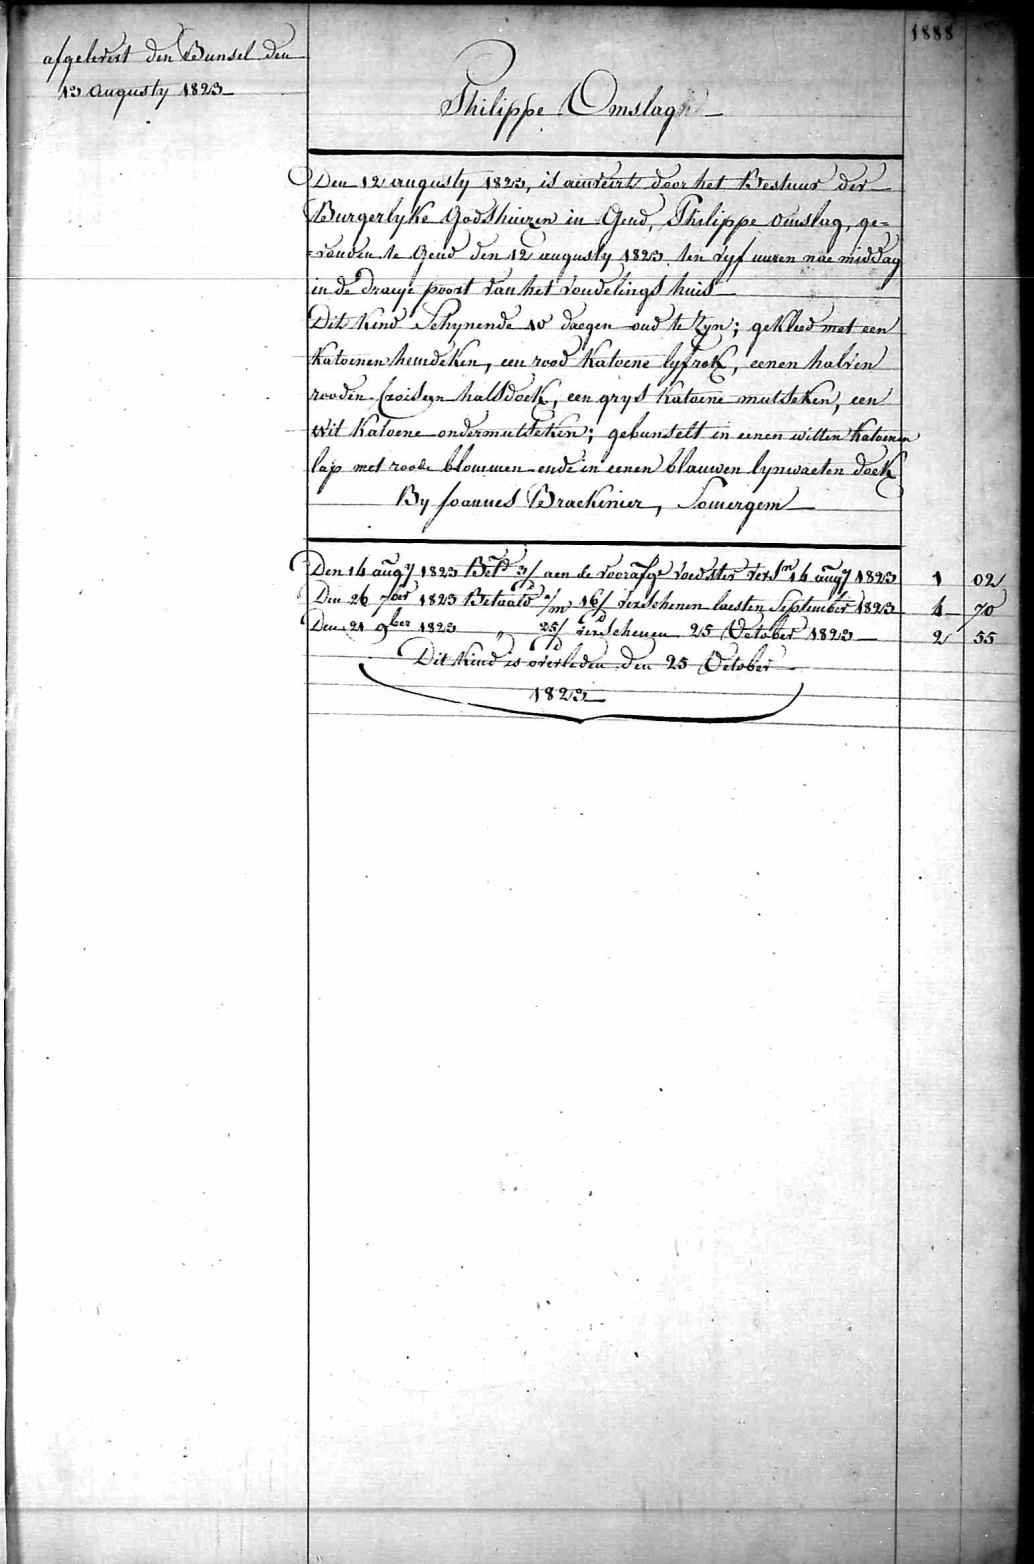 1888
afgelevert den Bunsel den
13 augusty 1823
Philippe Omslagh
Den 12 augusty 1823, is aenveirt door het Bestuur der
Burgerlyke Godshuizen in Gend, Philippe omslag, ge-
=vonden te Gend den 12 augusty 1823. ten vyf uuren nae middag
in de draeye poort van het vondelings huis
Dit Kind Schynende 10 daegen oud te Zyn; gekleed met een
Katoenen hemdeken, een rood Katoene lyfrok, eenen halven
rooden Croiseyn halsdoek, een grys Katoene mutseken, een
wit Katoene ondermutseken; gebunselt in eenen witten Katoenen
lap met roode blommen ende in eenen blauwen lynwaeten doek
By Joannes Brackinier, Somergem
Den 14 augy 1823 Betd 3/ aen de voorafge voedster versn 14 augy 1823 1 02
Den 26 7ber 1823 Betaald a/m 16/ verschenen laesten September 1823 4 70
Den 21 9ber 1823 " 25/ verschenen 25 October 1823 2 55
Dit Kind is overleden den 25 October
1823